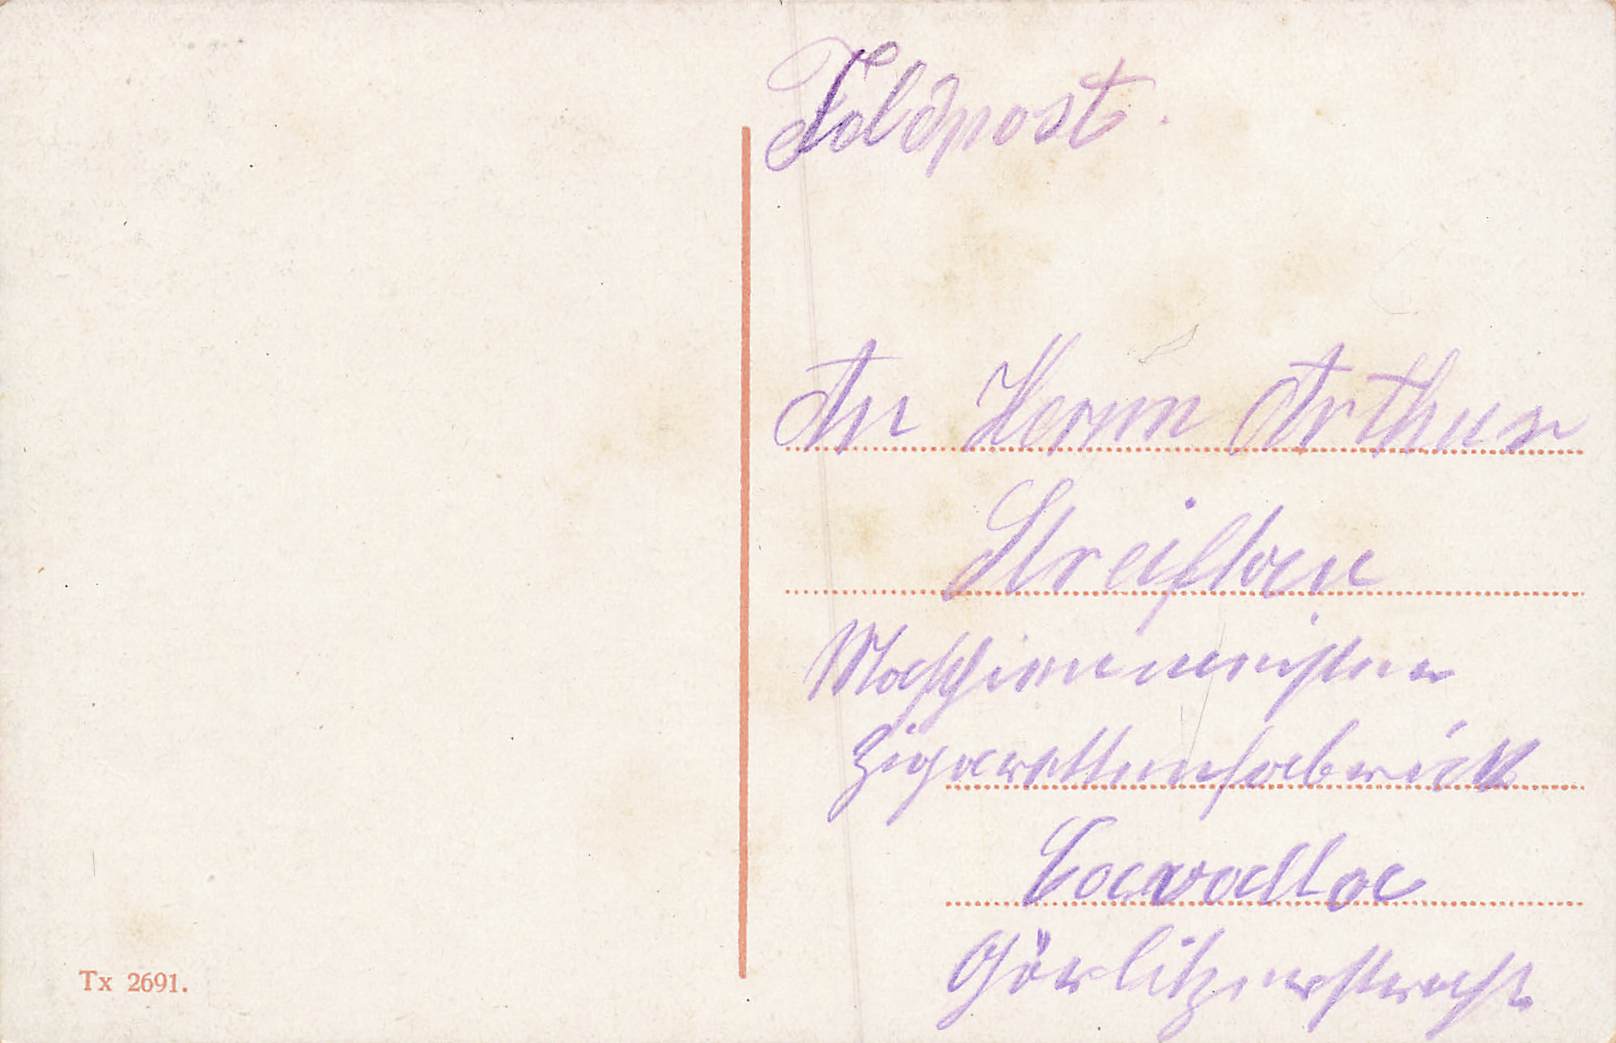 Feldpost.
An Herrn Arthur
Maschienenmeister
Zigarettenfabrick
Görlitzerstraße
Tx 2691.